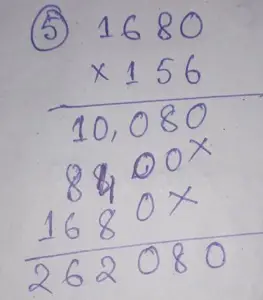 ⑤ 1680
×156
10,080
8400×
1680×
262080